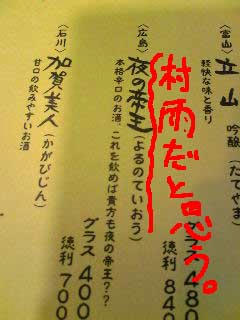 〈富山〉
立山 吟醸(たてやま)
軽快な味と香り
グラス 480
徳利 840
村雨だと思う。
〈広島〉
夜の帝王(よるのていおう)
本格辛口のお酒、これを飲めば貴方も夜の帝王??
グラス 400
徳利 700
〈石川〉
加賀美人(かがびじん)
甘口の飲みやすいお酒